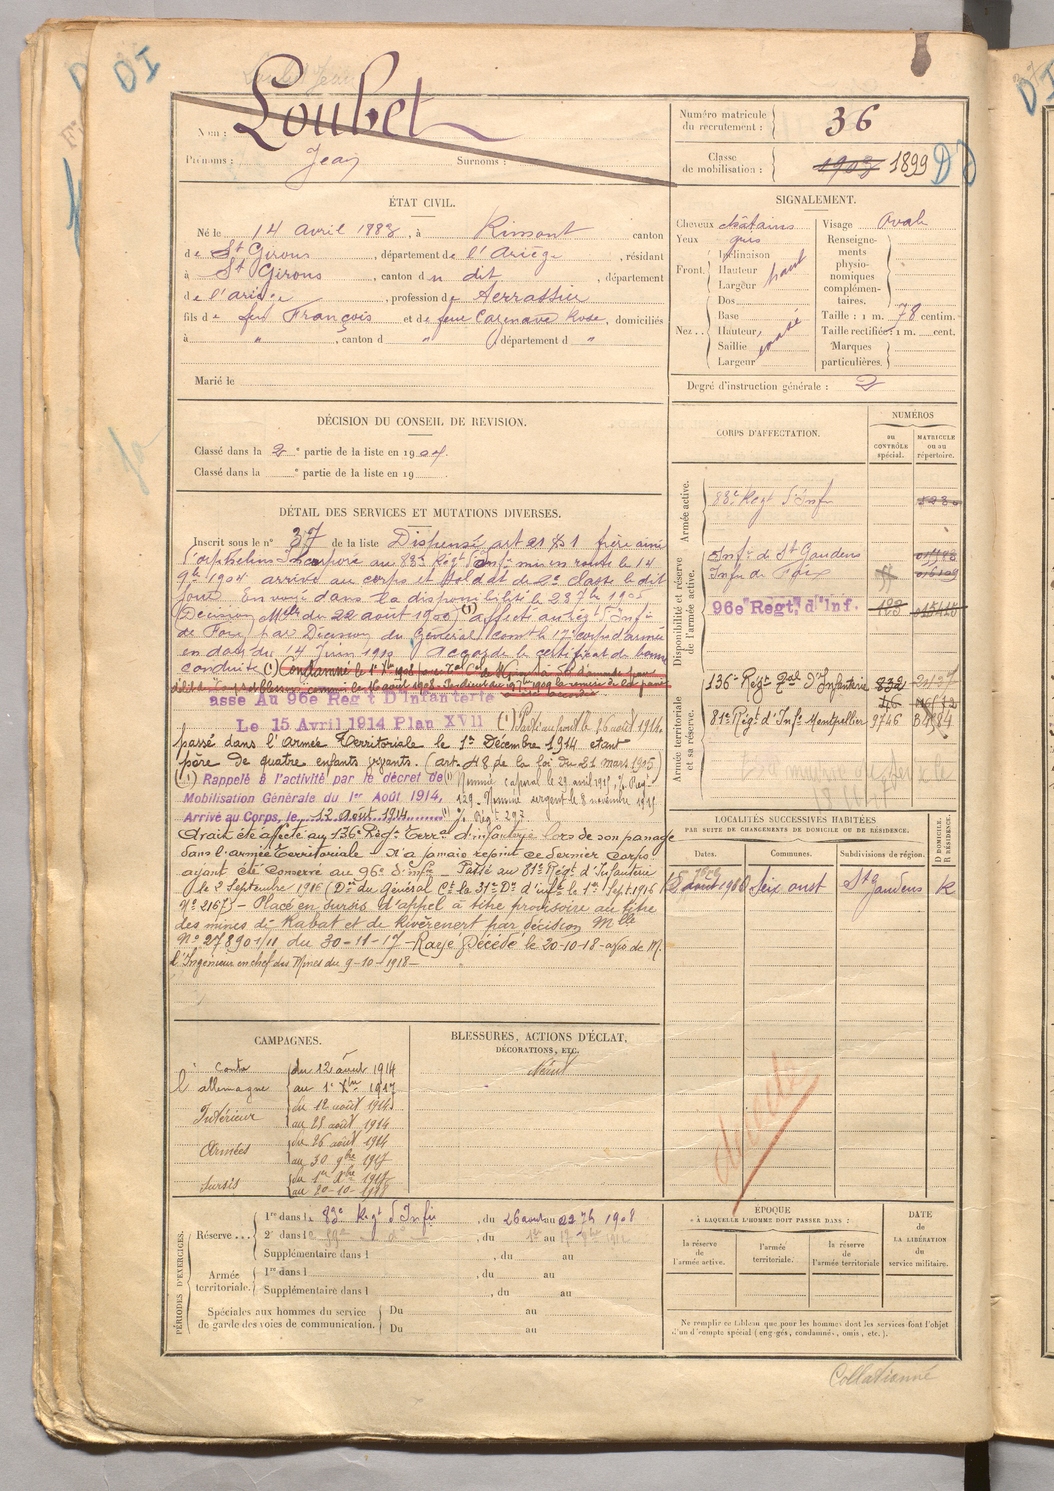 DI
Nom : Loubet
Prénoms : Jean Surnoms :
Numéro matricule du recrutement : 36
Classe de mobilisation : 1903 1899
ÉTAT CIVIL.
Né le 14 avril 1883, à Rimont canton
de St Girons, département de l'Ariège, résidant
à St Girons, canton du dit, département
de l'ariège, profession de Terrassier
fils de feu François et de feue Cazenave Rose, domiciliés
à " , canton d " , département d "
Marié le
SIGNALEMENT.
Cheveux châtains
Yeux gris
Front. Inclinaison
Hauteur haut
Largeur
Nez.. Dos
Base
Hauteur,
Saillie
Largeur
Visage Ovale
Renseignements physionomiques complémentaires.
Taille : 1 m. 78 centim.
Taille rectifiée : 1 m. cent.
Marques particulières.
Degré d'instruction générale : 2
DÉCISION DU CONSEIL DE REVISION.
Classé dans la 2e partie de la liste en 1904
Classé dans la e partie de la liste en 19
CORPS D'AFFECTATION.
NUMÉROS
au CONTRÔLE spécial.
MATRICULE ou au répertoire.
Armée active.
83e Regt d'Infie
Disponibilité et réserve de l'armée active.
Infie de St Gaudens
Infie de Foix
96e Regt, d'Inf. 123
Armée territoriale et sa réserve.
136e Regt Tal d'Infanterie 832
46
81e Regt d'Infie Montpellier 9746
DÉTAIL DES SERVICES ET MUTATIONS DIVERSES.
Inscrit sous le n° 37 de la liste Dispensé art 21 § 1 frère ainé
d'orphelin Incorporé au 83e Régt Infie mis en route le 14
9bre 1904 arrivé au corps et soldat de 2e classe le dit
jour. Envoyé dans la disponibilité le 23 7bre 1905
(Décision Mlle du 22 aout 1905) (1) affecté au régt d'Infie
de Foix par Décision du Général Comt le 17e corps d'armée
en date du 14 Juin 1912 Accordé le certificat de bonne
conduite (1) Condamné le
asse Au 96e Regt D'Infanterie
Le 15 Avril 1914 Plan XVII (1) Parti au front le 26 août 1914.
passé dans l'Armée Territoriale le 1er Décembre 1914 étant
père de quatre enfants vivants. (art. 48 de la loi du 21 mars 1905)
(1) Rappelé à l'activité par le décret de
Mobilisation Générale du 1er Août 1914,
Arrivé au Corps, le 12 Août 1914
(1) Nommé caporal le 29 avril 1915,
129 - Nommé sergent le 8 novembre 1915
Avait été affecté au 136e Régt Terral d'infanterie lors de son passage
dans l'armée Territoriale - N'a jamais rejoint ce dernier corps
ayant été conservé au 96e d'infie - Passé au 81e Régt d'Infanterie
le 2 Septembre 1916 (Don du Général Ct la 31e Don d'infie le 1er Sept 1916
N° 2167) - Placé en sursis d'appel à titre provisoire au titre
des mines de Rabat et de Rivèrenert par décision Mlle
N° 27890 1/11 du 30-11-17 - Rayé Décédé le 20-10-18 - avis de M.
l'Ingénieur en chef des Mines du 9-10-1918 -
LOCALITÉS SUCCESSIVES HABITÉES
PAR SUITE DE CHANGEMENTS DE DOMICILE OU DE RÉSIDENCE.
Dates. Communes. Subdivisions de région. D DOMICILE. R RÉSIDENCE.
août 1908 Seix oust St Gaudens R
CAMPAGNES.
Contre l'allemagne du 12 août 1914
au 1er Xbre 1917
Intérieur du 12 août 1914
au 25 août 1914
Armées du 26 août 1914
au 30 9bre 1917
Sursis du 1er Xbre 1917
au 20-10-1918
BLESSURES, ACTIONS D'ÉCLAT,
DÉCORATIONS, ETC.
Néant
décédé
PÉRIODES D'EXERCICES.
Réserve ... 1re dans le 83e Regt d'Infie , du 26 aout au 22 7bre 1908
2e dans le , du au
Supplémentaire dans l , du au
Armée territoriale. 1re dans l , du au
Supplémentaire dans l , du au
Spéciales aux hommes du service de garde des voies de communication. Du au
Du au
ÉPOQUE
« À LAQUELLE L'HOMME DOIT PASSER DANS :
la réserve de l'armée active.
l'armée territoriale.
la réserve de l'armée territoriale
DATE de LA LIBÉRATION du service militaire.
Ne remplir ce tableau que pour les hommes dont les services font l'objet
d'un décompte spécial (engagés, condamnés, omis, etc.).
Collationné